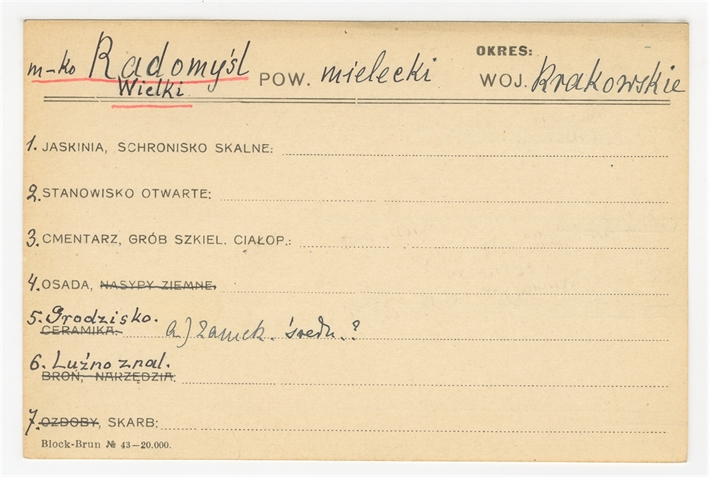 OKRES:
m-ko Radomyśl Wielki POW. mielecki WOJ. Krakowskie
1. JASKINIA, SCHRONISKO SKALNE:
2. STANOWISKO OTWARTE:
3. CMENTARZ, GRÓB SZKIEL. CIAŁOP.:
4. OSADA, NASYPY ZIEMNE,
5. Grodzisko.
CERAMIKA: a.) Zamek. średn.?
6. Luźno znal.
BROŃ, NARZĘDZIA:
7. OZDOBY, SKARB:
Block-Brun № 43—20.000.